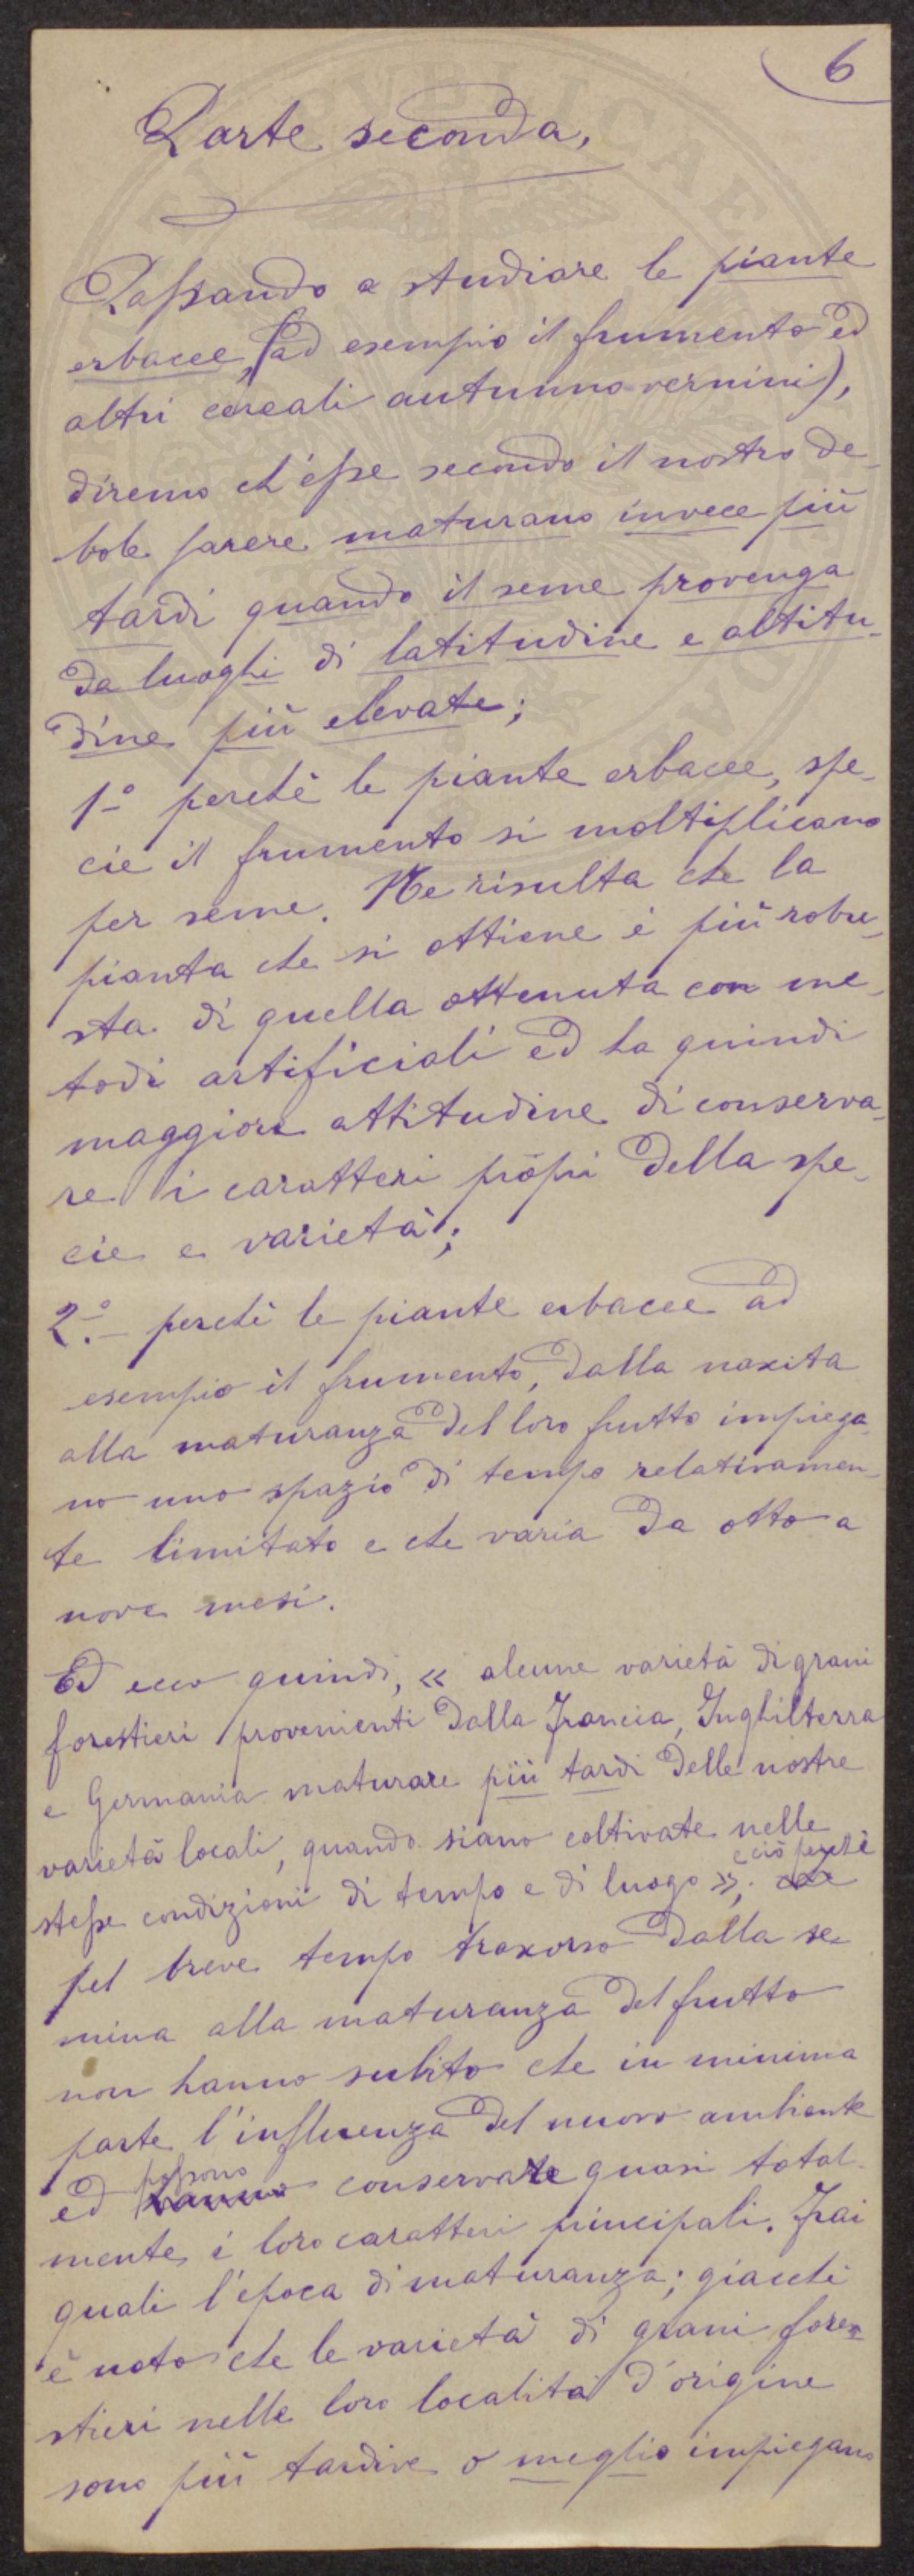 6
Parte seconda,
Passando a studiare le piante
erbacee, (ad esempio il frumento ed
altri cereali autunno vernini),
diremo ch'esse secondo il nostro de-
bole parere maturano invece più
tardi quando il seme provenga
da luoghi di latitudine e altitu-
dine più elevate;
1º perchè le piante erbacee, spe-
cie il frumento si moltiplicano
per seme. Ne risulta che la
pianta che si ottiene è più robu-
sta di quella ottenuta con me-
todi artificiali ed ha quindi
maggiore attitudine di conserva-
re i caratteri propri della spe-
cie e varietà;
2º.- perchè le piante erbacee ad
esempio il frumento, dalla nascita
alla maturanza del loro frutto impiega-
no uno spazio di tempo relativamen-
te limitato e che varia da otto a
nove mesi.
Ed ecco quindi, « alcune varietà di grani
forestieri provenienti dalla Francia, Inghilterra
e Germania maturare più tardi delle nostre
varietà locali, quando siano coltivate nelle
stesse condizioni di tempo e di luogo »; e ciò perchè
pel breve tempo trascorso dalla se-
mina alla maturanza del frutto
non hanno subito che in minima
parte l'influenza del nuovo ambiente
ed possono conservare quasi total-
mente i loro caratteri principali. Frai
quali l'epoca di maturanza; giacchè
è noto che le varietà di grani fore-
stieri nelle loro località d'origine
sono più tardive o meglio impiegano